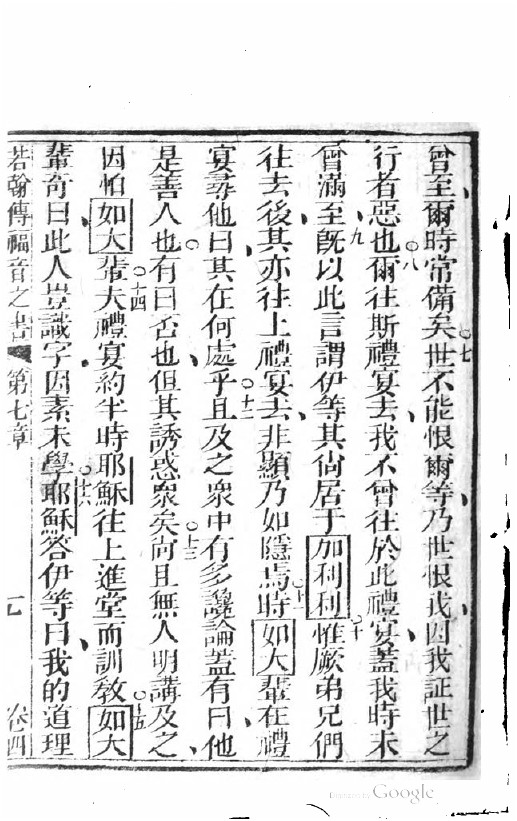 曾至爾時常備矣○七世不能恨爾等乃世恨我因我証世之
行者惡也○八爾往斯禮宴去我不曾往於此禮宴蓋我時未
曾滿至○九旣以此言謂伊等其尙居于加利利○十惟厥弟兄們
往去後其亦往上禮宴去非顯乃如隱焉○十一時如大輩在禮
宴尋他曰其在何處乎○十二且及之衆中有多議論蓋有曰他
是善人也○有曰否也但其誘惑衆矣○十三尙且無人明講及之
因怕如大輩○十四夫禮宴約半時耶穌往上進堂而訓敎○十五如大
輩奇曰此人豈識字因素未學○十六耶穌答伊等曰我的道理
若翰傳福音之書 第七章 七 卷四
Digitized by Google